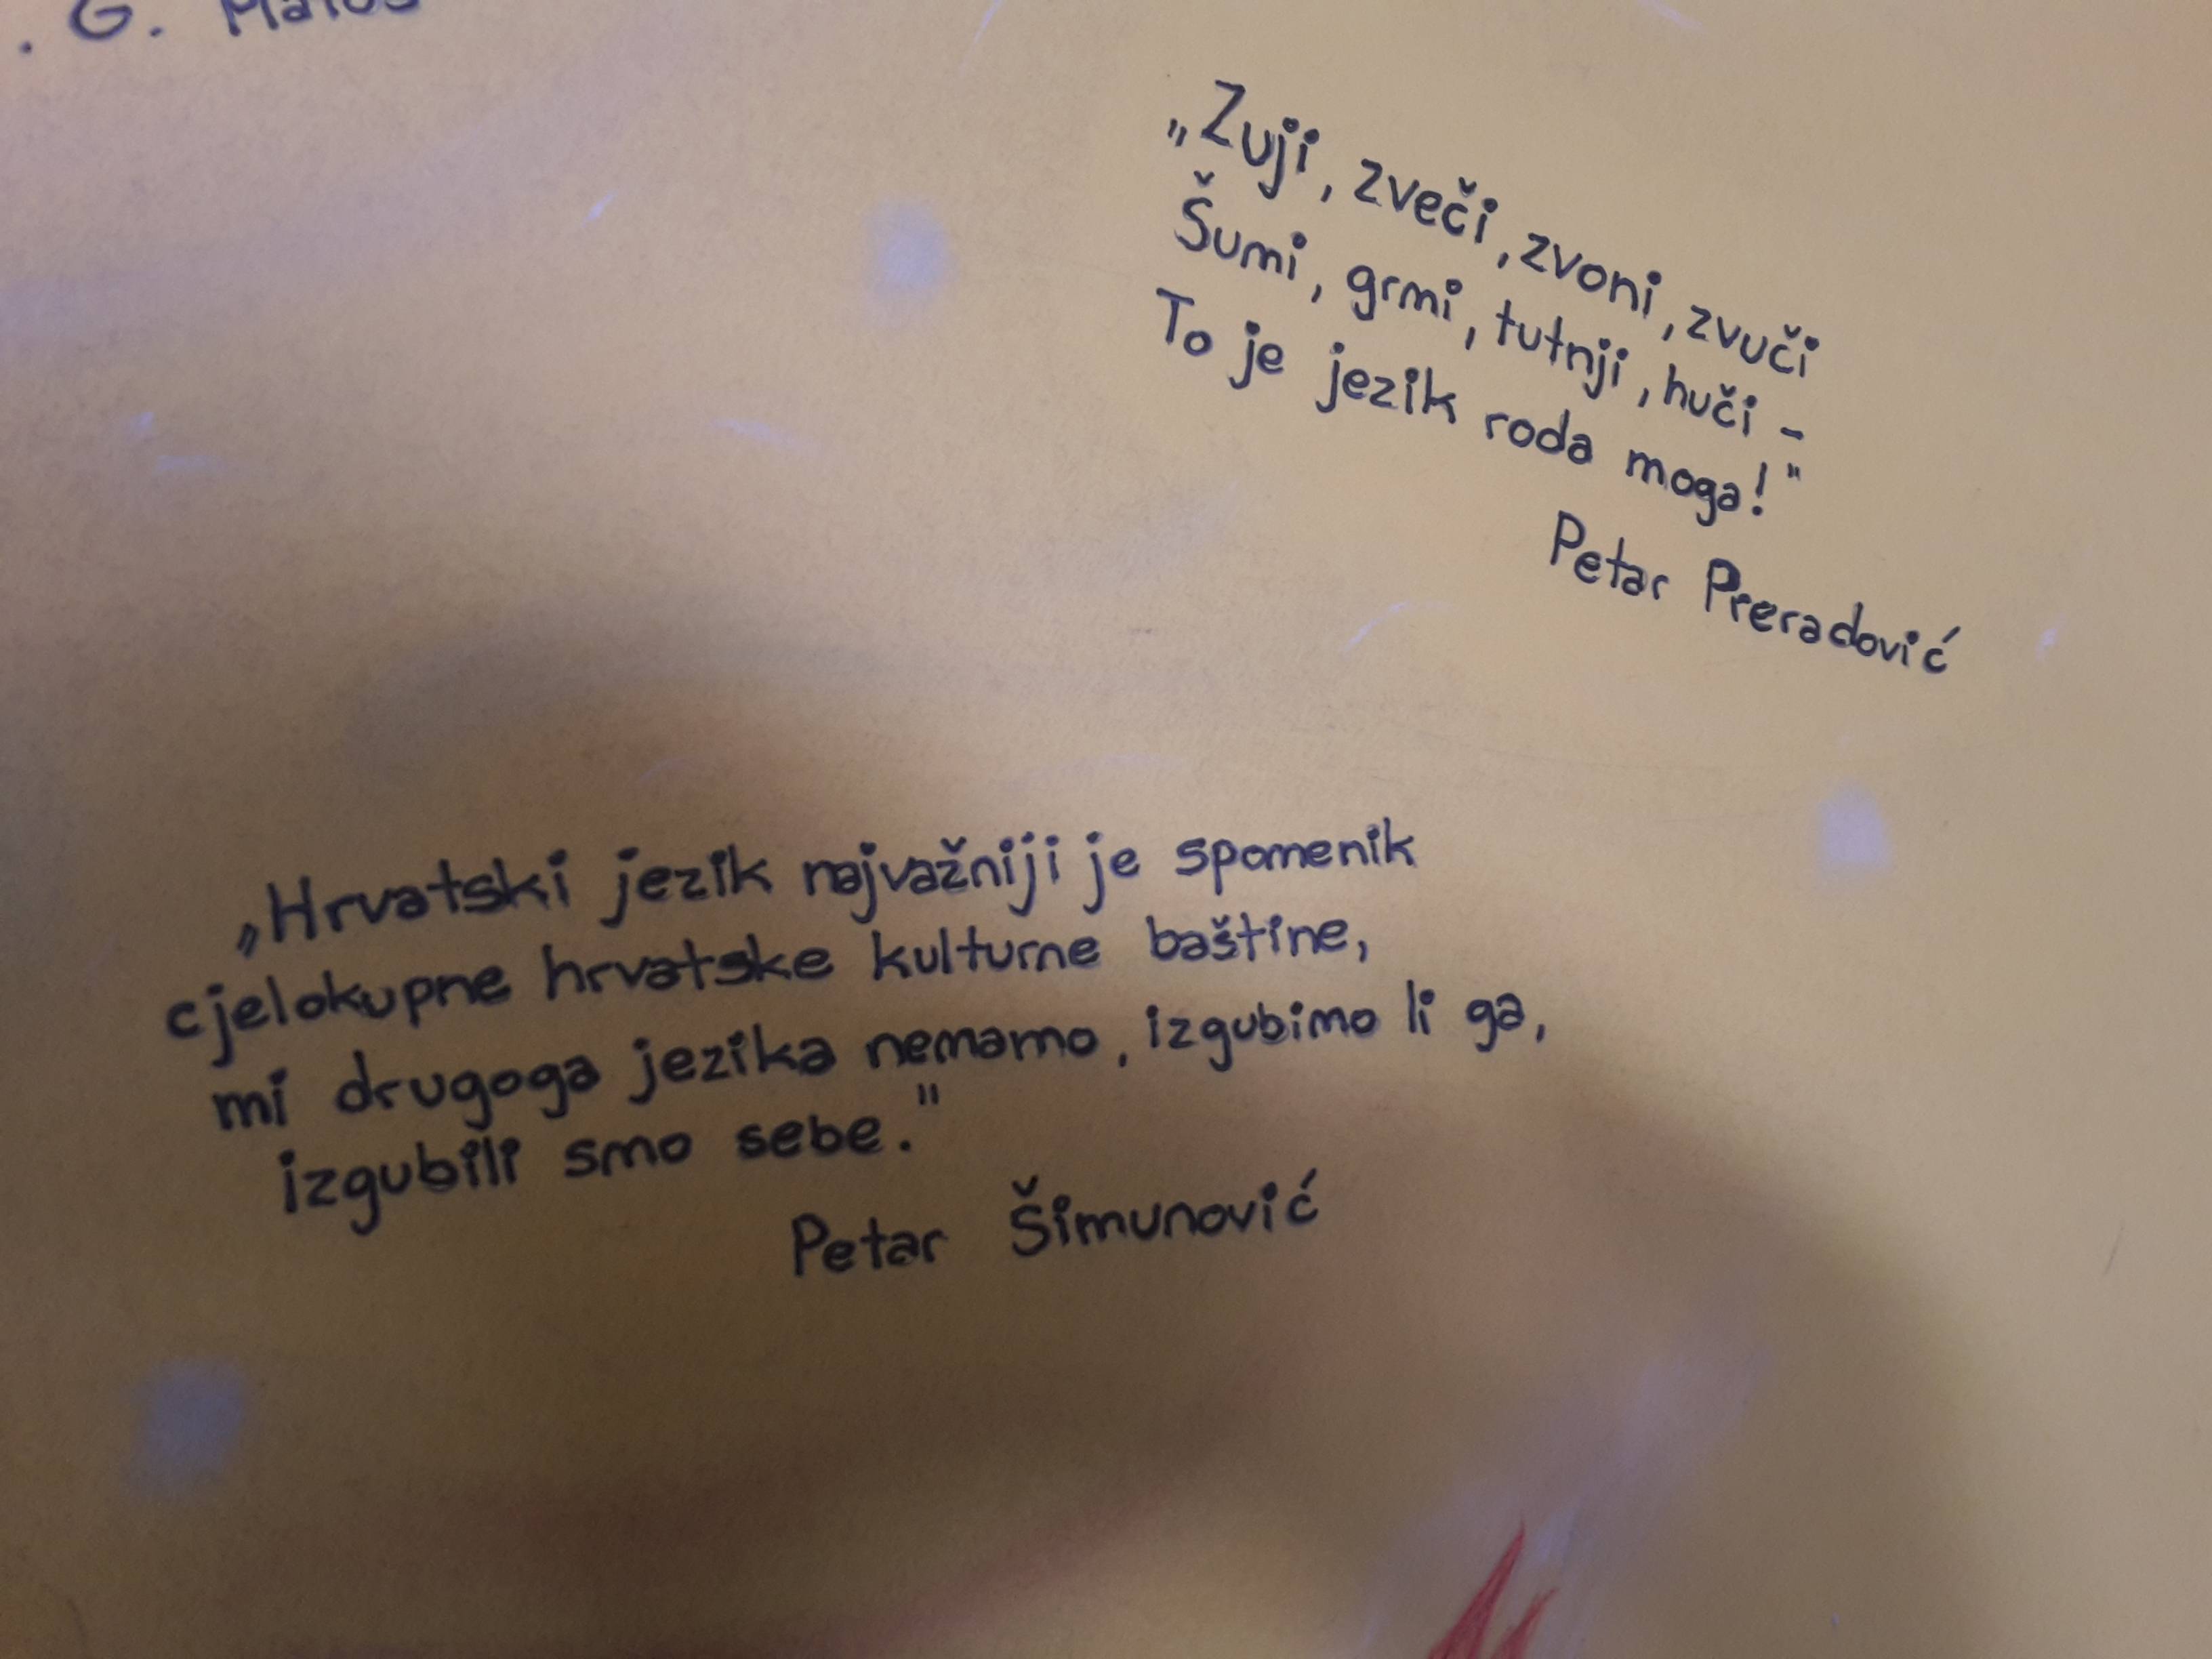 . G. Matoš
„Zuji, zveči, zvoni, zvuči
Šumi, grmi, tutnji, huči -
To je jezik roda moga!"
Petar Preradović
„Hrvatski jezik najvažniji je spomenik
cjelokupne hrvatske kulturne baštine,
mi drugoga jezika nemamo, izgubimo li ga,
izgubili smo sebe."
Petar Šimunović